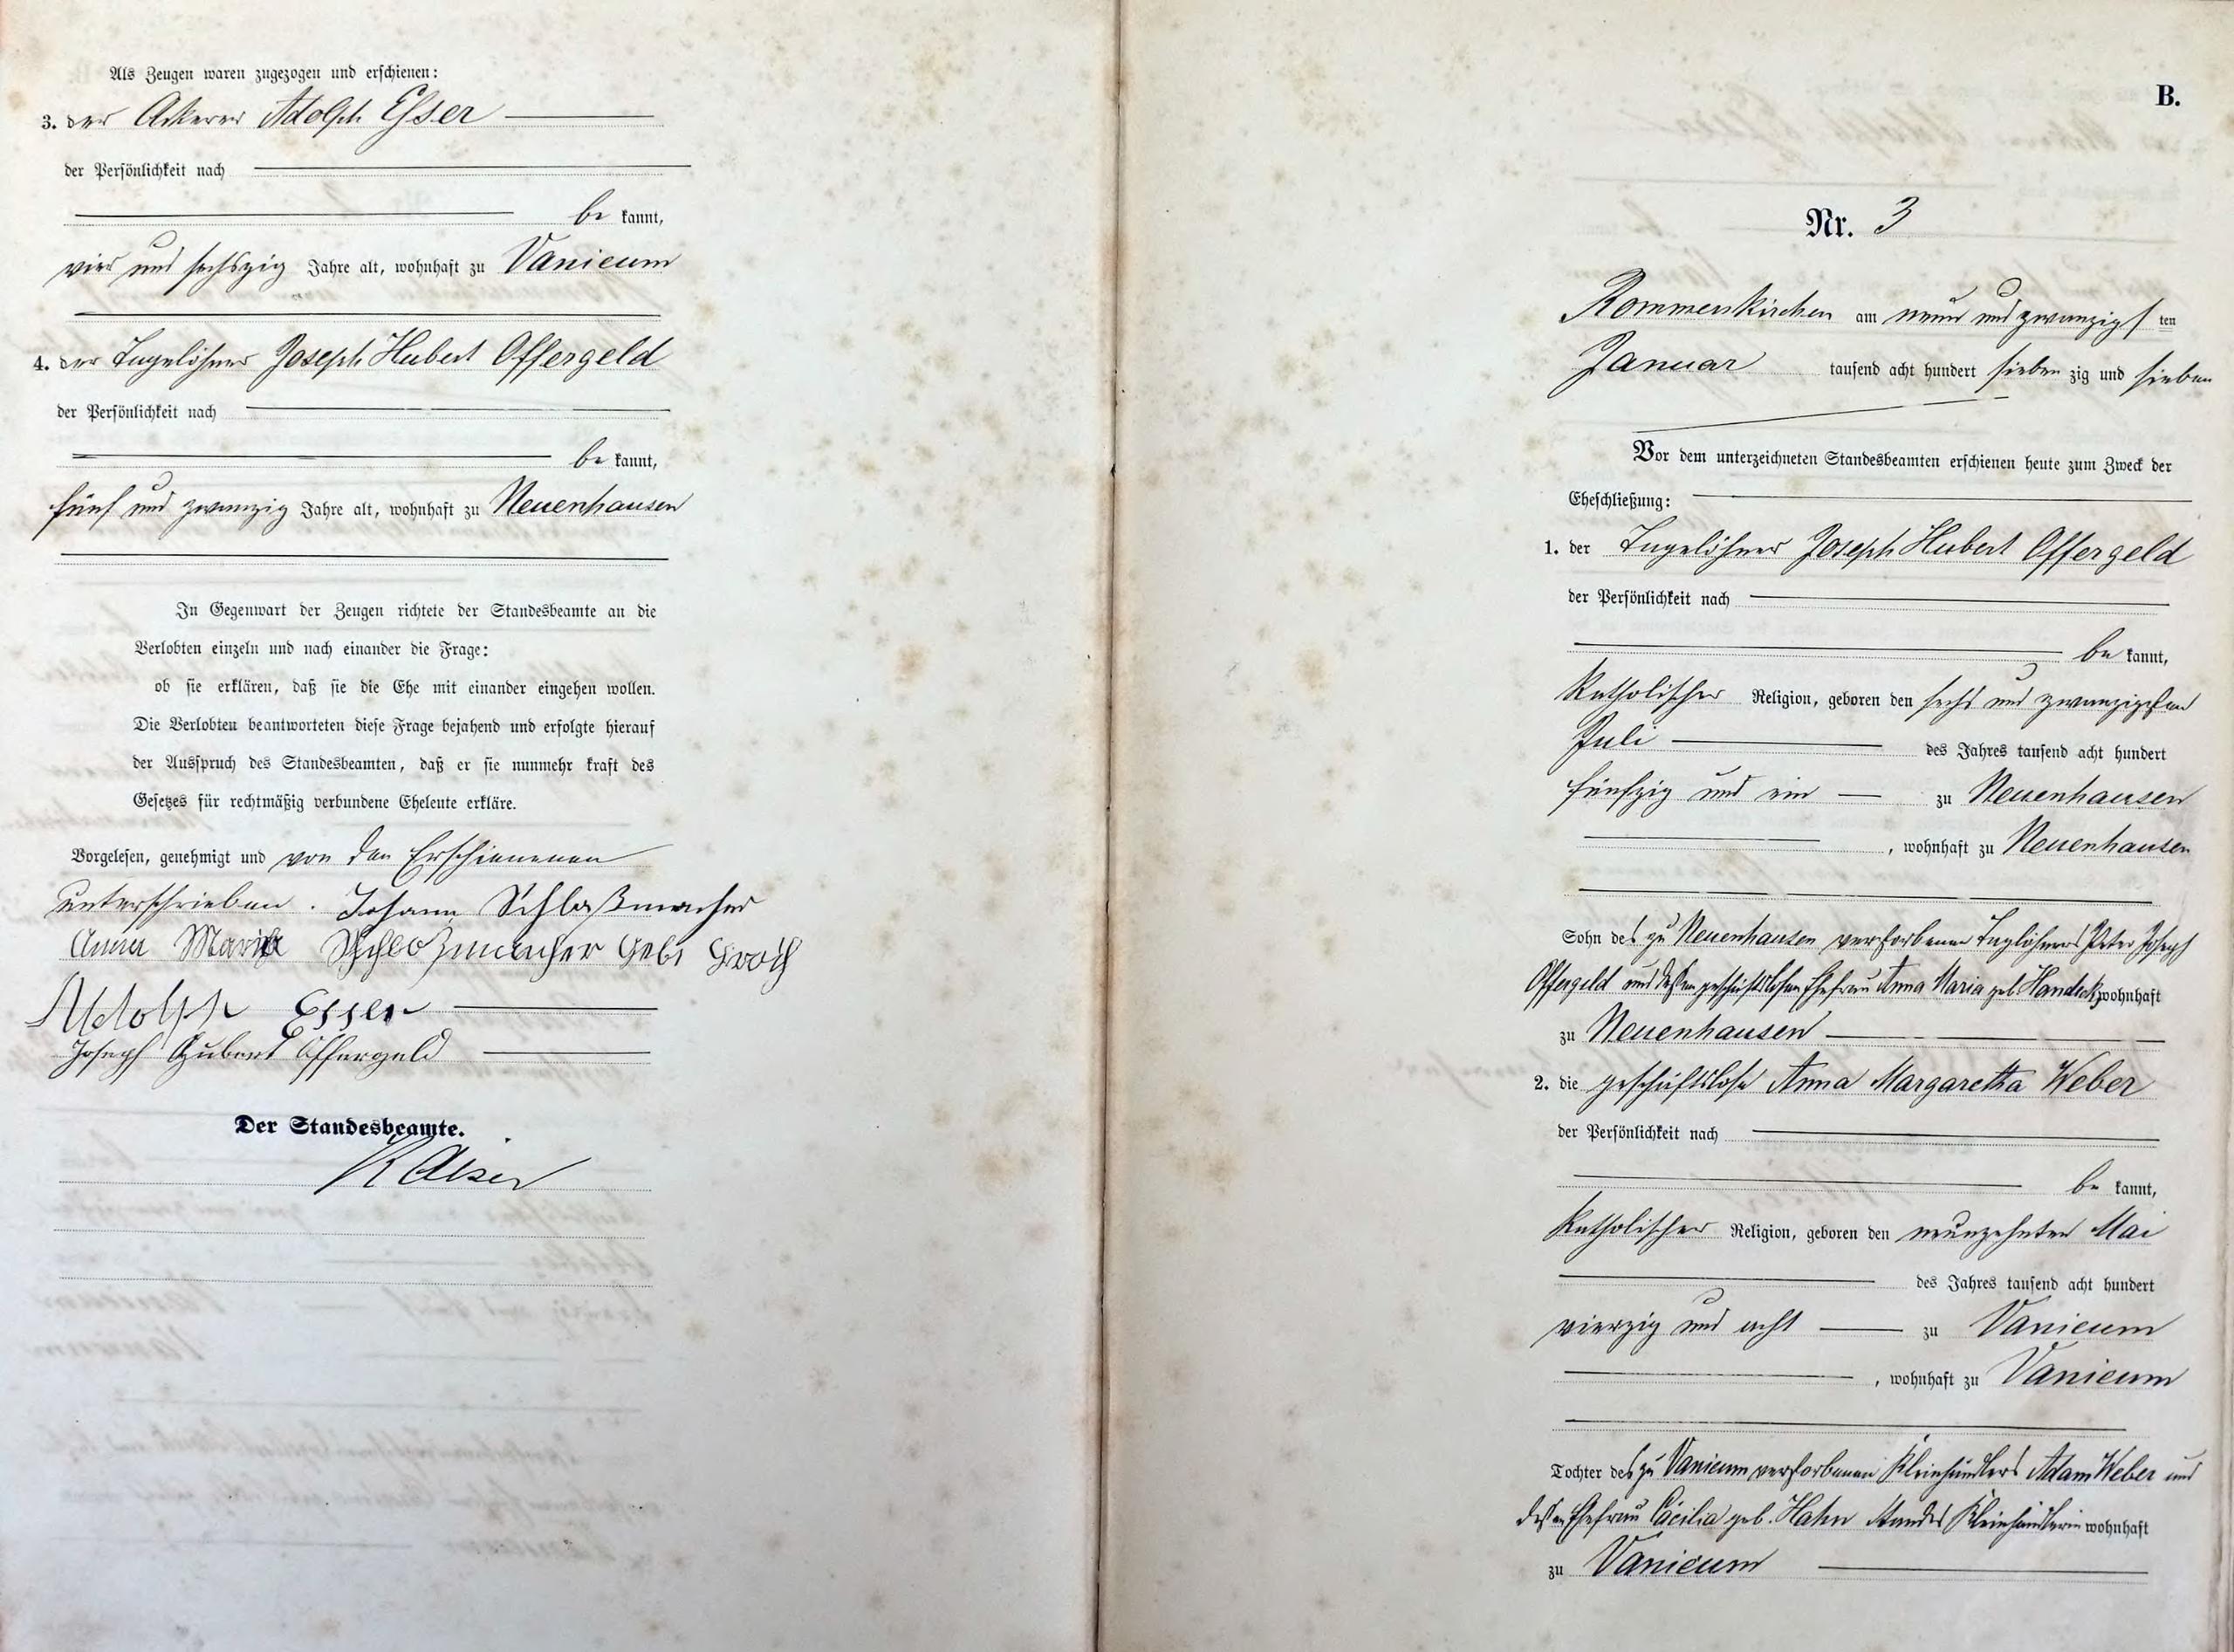 Als Zeugen waren zugezogen und erschienen:
3. der Ackerer Adolph Esser
der Persönlichkeit nach
be kannt,
vier und sechszig Jahre alt, wohnhaft zu Vanicum
4. der Tagelöhner Joseph Hubert Offergeld
der Persönlichkeit nach
be kannt,
fünf und zwanzig Jahre alt, wohnhaft zu Neuenhausen
In Gegenwart der Zeugen richtete der Standesbeamte an die
Verlobten einzeln und nach einander die Frage:
ob sie erklären, daß sie die Ehe mit einander eingehen wollen.
Die Verlobten beantworteten diese Frage bejahend und erfolgte hierauf
der Ausspruch des Standesbeamten, daß er sie nunmehr kraft des
Gesetzes für rechtmäßig verbundene Eheleute erkläre.
Vorgelesen, genehmigt und von den Erschienenen
unterschrieben. Johann Schloßmacher
Anna Maria Schloßmacher Geb:
Adolph Esser
Joseph Hubert Offergeld
Der Standesbeamte.
Kaiser
B.
Nr. 3
Rommerskirchen am neun und zwanzigs ten
Januar tausend acht hundert sieben zig und sieben
Vor dem unterzeichneten Standesbeamten erschienen heute zum Zweck der
Eheschließung:
1. der Tagelöhner Joseph Hubert Offergeld
der Persönlichkeit nach
be kannt,
katholischer Religion, geboren den sechs und zwanzigsten
Juli des Jahres tausend acht hundert
fünfzig und ein zu Neuenhausen
, wohnhaft zu Neuenhausen
Sohn des zu Neuenhausen verstorbenen Taglöhners Peter Joseph
Offergeld und dessen geschäftslosen Ehefrau Anna Maria geb. wohnhaft
zu Neuenhausen
2. die geschäftslose Anna Margaretha Weber
der Persönlichkeit nach
be kannt,
katholischer Religion, geboren den neunzehnten Mai
des Jahres tausend acht hundert
vierzig und acht zu Vanicum
, wohnhaft zu Vanicum
Tochter des zu Vanicum verstorbenen Kleinhändlers Adam Weber und
dessen Ehefrau Cäcilia geb. Hahn Standes Kleinhändlerin wohnhaft
zu Vanicum